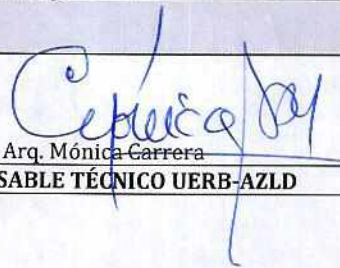 Arq. Mónica Carrera
SABLE TÉCNICO UERB-AZLD